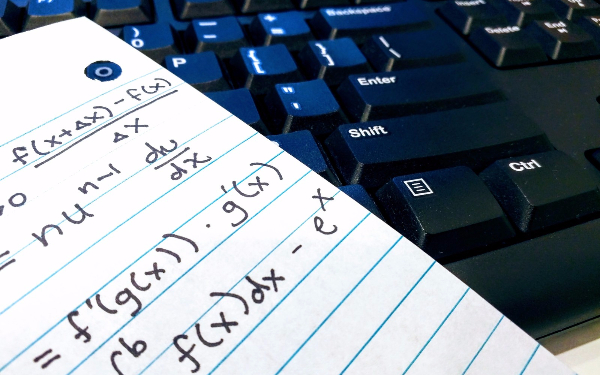 f(x+Δx)-f(x)
Δx
= nu^n-1 du/dx
= f'(g(x)) · g'(x)
∫b f(x)dx - e^x
Backspace
+ =
_ -
) 0
P
{ [
} ]
| \
Delete
End
Enter
" '
Shift
Ctrl